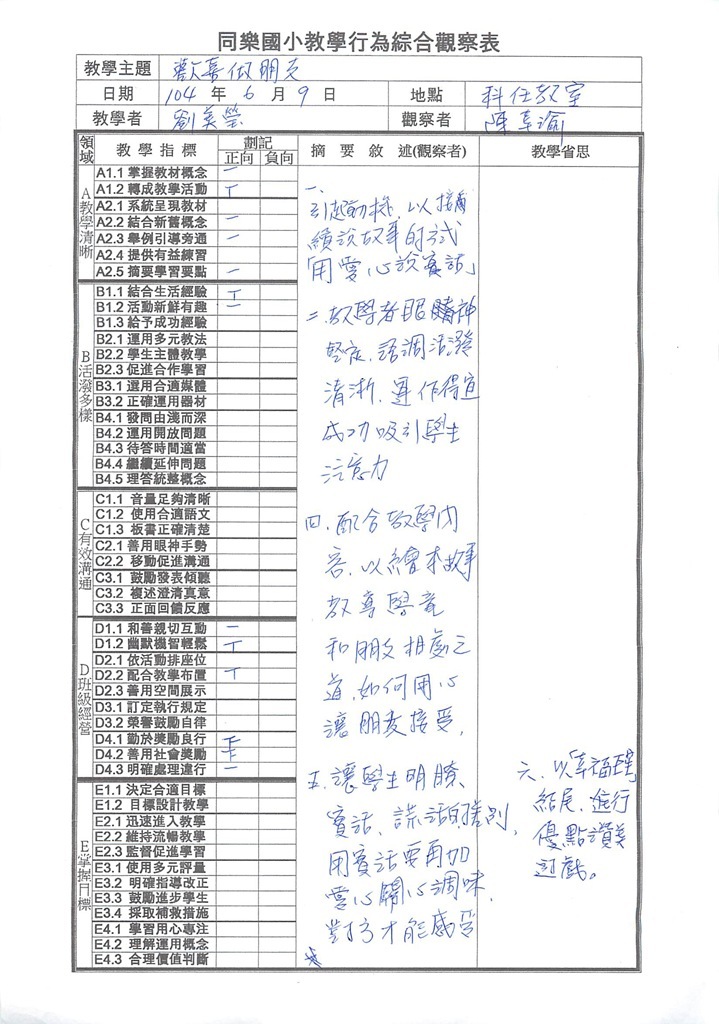 同樂國小教學行為綜合觀察表
教學主題 歡喜做朋友
日期 104 年 6 月 9 日 地點 科任教室
教學者 劉美瑩 觀察者 陳
領域 教學指標 劃記 摘要敘述(觀察者) 教學省思
正向 負向
A教學清晰
A1.1 掌握教材概念 一
A1.2 轉成教學活動 丅
A2.1 系統呈現教材
A2.2 結合新舊概念 一
A2.3 舉例引導旁通 一
A2.4 提供有益練習
A2.5 摘要學習要點 一
B活潑多樣
B1.1 結合生活經驗
B1.2 活動新鮮有趣
B1.3 給予成功經驗
B2.1 運用多元教法
B2.2 學生主體教學
B2.3 促進合作學習
B3.1 選用合適媒體
B3.2 正確運用器材
B4.1 發問由淺而深
B4.2 運用開放問題
B4.3 待答時間適當
B4.4 繼續延伸問題
B4.5 理答統整概念
C有效溝通
C1.1 音量足夠清晰
C1.2 使用合適語文
C1.3 板書正確清楚
C2.1 善用眼神手勢
C2.2 移動促進溝通
C3.1 鼓勵發表傾聽
C3.2 複述澄清真意
C3.3 正面回饋反應
D班級經營
D1.1 和善親切互動
D1.2 幽默機智輕鬆 丅
D2.1 依活動排座位
D2.2 配合教學布置 丅
D2.3 善用空間展示
D3.1 訂定執行規定
D3.2 榮譽鼓勵自律
D4.1 勤於獎勵良行
D4.2 善用社會獎勵
D4.3 明確處理違行 一
E掌握目標
E1.1 決定合適目標
E1.2 目標設計教學
E2.1 迅速進入教學
E2.2 維持流暢教學
E2.3 監督促進學習
E3.1 使用多元評量
E3.2 明確指導改正
E3.3 鼓勵進步學生
E3.4 採取補救措施
E4.1 學習用心專注
E4.2 理解運用概念
E4.3 合理價值判斷
一、
引起動機,以接
續說故事的方式
「用愛心說實話」
二、教學者眼睛神
堅定,語調活潑
清淅,運作得宜
成功吸引學生
注意力
四、配合教學內
容,以繪本故事
教導學童
和朋友相處之
道,如何用心
讓朋友接受,
五、讓學生明瞭
實話、謊話的差別,
用實話要再加
愛心關心調味
對方才能感受
六、以「幸福
結尾,進行
優點讚美
遊戲。